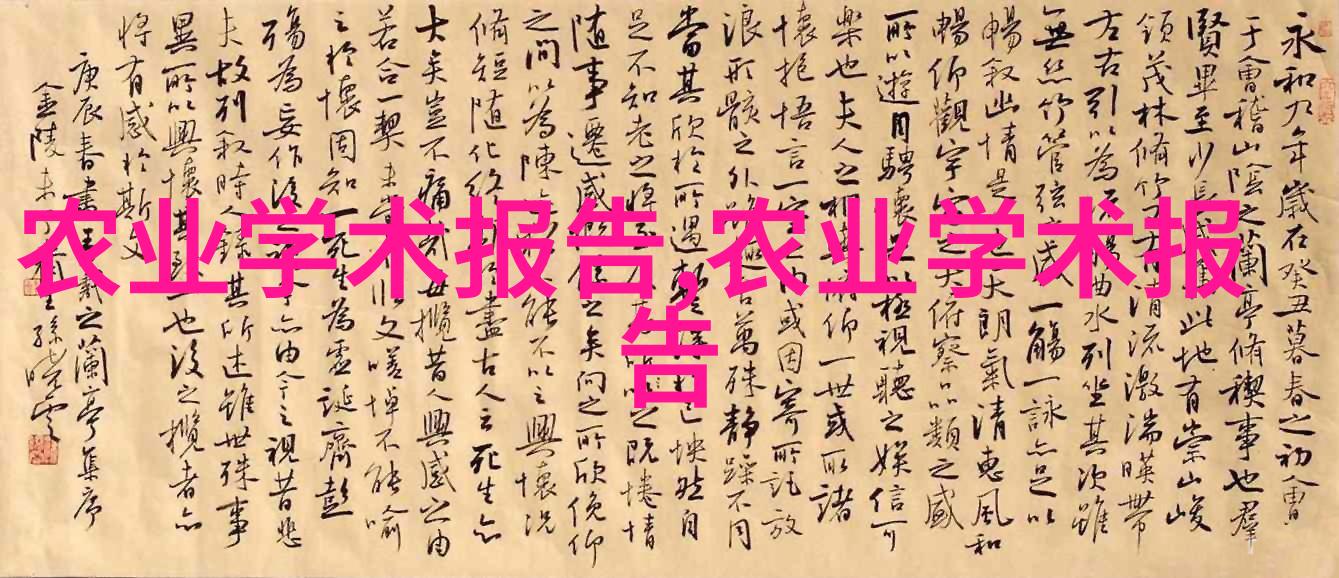 永和九年歲在癸丑暮春之初會
于會稽山陰之蘭亭脩禊事也羣
賢畢至少長咸集此地有崇山峻
領茂林脩竹又有清流激湍暎帶
左右引以為流觴曲水列坐其次雖
無絲竹管弦之盛一觴一詠亦足以
暢敘幽情是日也天朗氣清惠風和
暢仰觀宇宙之大俯察品類之盛
所以遊目騁懷足以極視聽之娛信可
樂也夫人之相與俯仰一世或取諸
懷抱悟言一室之內或因寄所託放
浪形骸之外雖趣舍萬殊靜躁不同
當其欣於所遇暫得於己怏然自
足不知老之將至及其所之既惓情
隨事遷感慨係之矣向之所欣俛仰
之間以為陳迹猶不能不以之興懷況
脩短隨化終期於盡古人云死生亦
大矣豈不痛哉每攬昔人興感之由
若合一契未嘗不臨文嗟悼不能喻
之於懷固知一死生為虛誕齊彭
殤為妄作後之視今亦由今之視昔悲
夫故列敘時人錄其所述雖世殊事
異所以興懷其致一也後之攬者亦
將有感於斯文
庚辰春書王羲之蘭亭集序
金陵 孫曉雲
农业学术报告,农业学术报
告